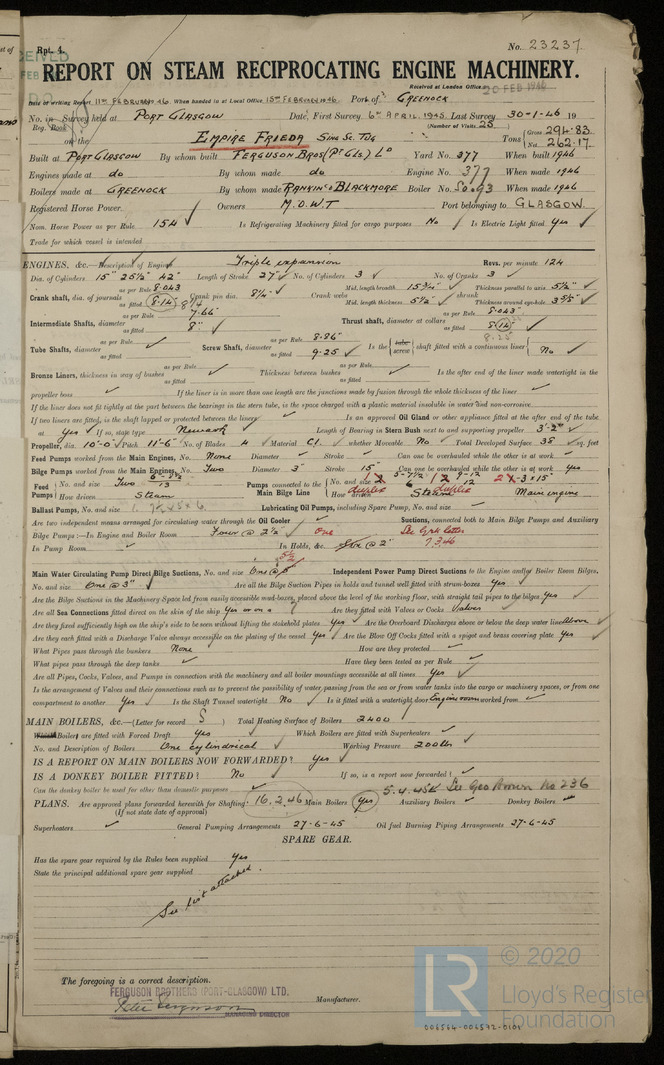 Rpt. 4.
No. 23237.
REPORT ON STEAM RECIPROCATING ENGINE MACHINERY.
Received at London Office 20 FEB 1946
Date of writing Report 11TH FEBRUARY 1946. When handed in at Local Office 15TH FEBRUARY 1946 Port of GREENOCK
No. in Survey held at PORT GLASGOW Date, First Survey 6th APRIL 1945 Last Survey 30-1-46 19
Reg. Book (Number of Visits 25)
on the EMPIRE FRIEDA SING SC. TUG Tons Gross 294.83
Net 262.17
Built at PORT GLASGOW By whom built FERGUSON BROS (PT GLS) LD Yard No. 377 When built 1946
Engines made at do By whom made do Engine No. 377 When made 1946
Boilers made at GREENOCK By whom made RANKIN & BLACKMORE Boiler No. When made 1946
Registered Horse Power Owners M.O.W.T Port belonging to GLASGOW
Nom. Horse Power as per Rule 154 Is Refrigerating Machinery fitted for cargo purposes No Is Electric Light fitted Yes
Trade for which vessel is intended
ENGINES, &c.—Description of Engines Triple expansion Revs. per minute 124
Dia. of Cylinders 15" 25½" 42" Length of Stroke 27" No. of Cylinders 3 No. of Cranks 3
Crank shaft, dia. of journals as per Rule 8.043 as fitted 8.14 8¼ Crank pin dia. 8¼" Crank webs Mid. length breadth 15¾" Thickness parallel to axis 5½"
Mid. length thickness 5½" shrunk Thickness around eye-hole
Intermediate Shafts, diameter as per Rule 7.66 as fitted 8" Thrust shaft, diameter at collars as per Rule 8.043 as fitted 8.14 8.25
Tube Shafts, diameter as per Rule as fitted Screw Shaft, diameter as per Rule 8.86 as fitted 9.25 Is the tube screw shaft fitted with a continuous liner No
Bronze Liners, thickness in way of bushes as per Rule as fitted Thickness between bushes as per Rule as fitted Is the after end of the liner made watertight in the
propeller boss If the liner is in more than one length are the junctions made by fusion through the whole thickness of the liner
If the liner does not fit tightly at the part between the bearings in the stern tube, is the space charged with a plastic material insoluble in water and non-corrosive
If two liners are fitted, is the shaft lapped or protected between the liners Is an approved Oil Gland or other appliance fitted at the after end of the tube
shaft Yes If so, state type Newark Length of Bearing in Stern Bush next to and supporting propeller 3'-2"
Propeller, dia. 10'-0" Pitch 11'-6" No. of Blades 4 Material C.I. whether Moveable No Total Developed Surface 38 sq. feet
Feed Pumps worked from the Main Engines, No. None Diameter Stroke Can one be overhauled while the other is at work
Bilge Pumps worked from the Main Engines, No. Two Diameter 3" Stroke 15" Can one be overhauled while the other is at work Yes
Feed Pumps No. and size Two How driven Steam Pumps connected to the Main Bilge Line No. and size 2 - 3 x 15" How driven duplex Steam duplex Main engine
Ballast Pumps, No. and size Lubricating Oil Pumps, including Spare Pump, No. and size
Are two independent means arranged for circulating water through the Oil Cooler Suctions, connected both to Main Bilge Pumps and Auxiliary
Bilge Pumps:—In Engine and Boiler Room Four @ 2½" one See Grk letter
In Pump Room In Holds, &c. Six @ 2" 7.3.46
Main Water Circulating Pump Direct Bilge Suctions, No. and size One @ 5½ Independent Power Pump Direct Suctions to the Engine and/or Boiler Room Bilges,
No. and size One @ 3" Are all the Bilge Suction Pipes in holds and tunnel well fitted with strum-boxes Yes
Are the Bilge Suctions in the Machinery Space led from easily accessible mud-boxes, placed above the level of the working floor, with straight tail pipes to the bilges Yes
Are all Sea Connections fitted direct on the skin of the ship Yes Are they fitted with Valves or Cocks Valves
Are they fixed sufficiently high on the ship's side to be seen without lifting the stokehold plates Yes Are the Overboard Discharges above or below the deep water line Above
Are they each fitted with a Discharge Valve always accessible on the plating of the vessel Yes Are the Blow Off Cocks fitted with a spigot and brass covering plate Yes
What Pipes pass through the bunkers None How are they protected
What pipes pass through the deep tanks Have they been tested as per Rule
Are all Pipes, Cocks, Valves, and Pumps in connection with the machinery and all boiler mountings accessible at all times Yes
Is the arrangement of Valves and their connections such as to prevent the possibility of water passing from the sea or from water tanks into the cargo or machinery spaces, or from one
compartment to another Yes Is the Shaft Tunnel watertight No Is it fitted with a watertight door Engine room worked from
MAIN BOILERS, &c.—(Letter for record S) Total Heating Surface of Boilers 2400
Which Boilers are fitted with Forced Draft Yes Which Boilers are fitted with Superheaters
No. and Description of Boilers One cylindrical Working Pressure 200 lbs
IS A REPORT ON MAIN BOILERS NOW FORWARDED? Yes
IS A DONKEY BOILER FITTED? No If so, is a report now forwarded?
Can the donkey boiler be used for other than domestic purposes 5.4.45 See Geo Brown No 236
PLANS. Are approved plans forwarded herewith for Shafting 16.2.46 Main Boilers Yes Auxiliary Boilers Donkey Boilers
(If not state date of approval)
Superheaters General Pumping Arrangements 27-6-45 Oil fuel Burning Piping Arrangements 27-6-45
SPARE GEAR.
Has the spare gear required by the Rules been supplied Yes
State the principal additional spare gear supplied
See list attached.
The foregoing is a correct description.
FERGUSON BROTHERS (PORT-GLASGOW) LTD.
Peter Ferguson Manufacturer.
MANAGING DIRECTOR
© 2020
LR Lloyd's Register
Foundation
006564-006572-0101